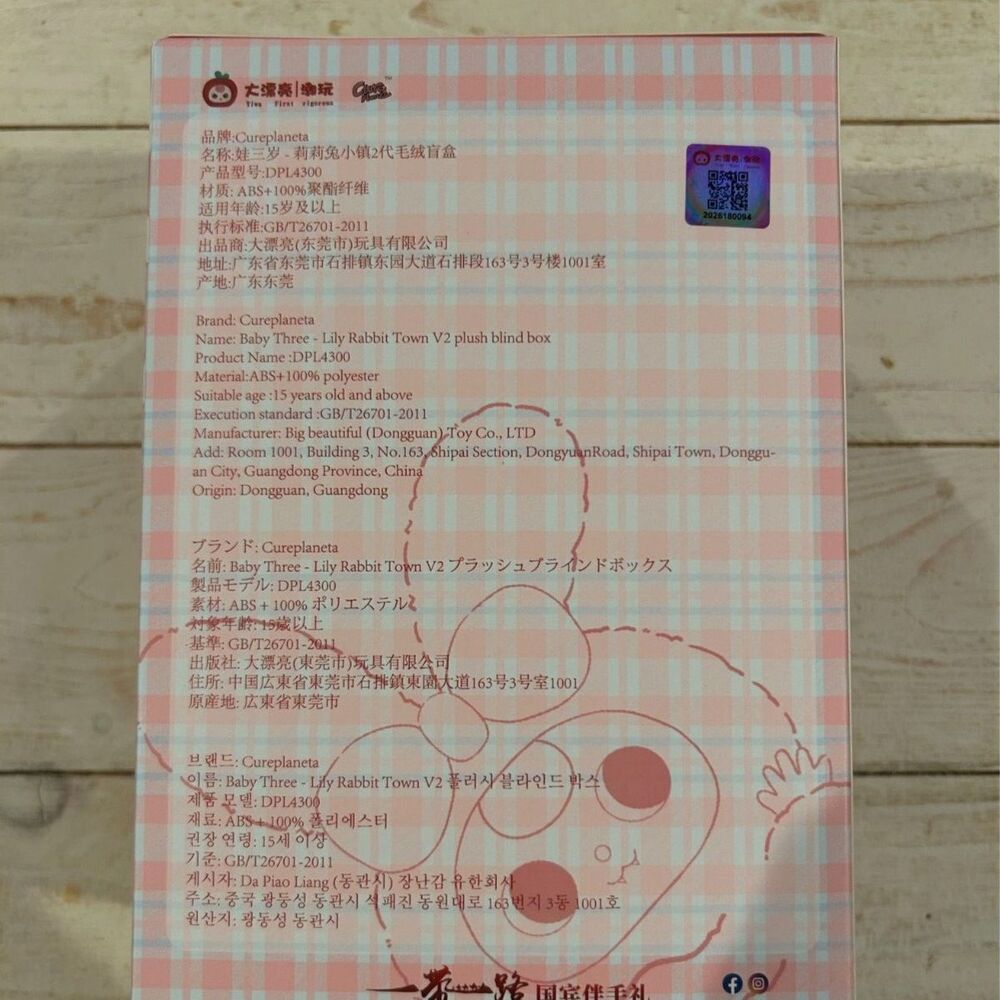 大漂亮|潮玩
Yiwu First vigorous
品牌:Cureplaneta
名称:娃三岁 - 莉莉兔小镇2代毛绒盲盒
产品型号:DPL4300
材质: ABS+100%聚酯纤维
适用年龄:15岁及以上
执行标准:GB/T26701-2011
出品商:大漂亮(东莞市)玩具有限公司
地址:广东省东莞市石排镇东园大道石排段163号3号楼1001室
产地:广东东莞
大漂亮|潮玩
2026180094
Brand: Cureplaneta
Name: Baby Three - Lily Rabbit Town V2 plush blind box
Product Name :DPL4300
Material:ABS+100% polyester
Suitable age :15 years old and above
Execution standard :GB/T26701-2011
Manufacturer: Big beautiful (Dongguan) Toy Co., LTD
Add: Room 1001, Building 3, No.163, Shipai Section, DongyuanRoad, Shipai Town, Donggu-
an City, Guangdong Province, China
Origin: Dongguan, Guangdong
ブランド: Cureplaneta
名前: Baby Three - Lily Rabbit Town V2 プラッシュブラインドボックス
製品モデル: DPL4300
素材: ABS + 100% ポリエステル
対象年齢: 15歳以上
基準: GB/T26701-2011
出版社: 大漂亮(東莞市)玩具有限公司
住所: 中国広東省東莞市石排鎮東園大道163号3号室1001
原産地: 広東省東莞市
브랜드: Cureplaneta
이름: Baby Three - Lily Rabbit Town V2 플러시 블라인드 박스
제품 모델: DPL4300
재료: ABS + 100% 폴리에스터
권장 연령: 15세 이상
기준: GB/T26701-2011
게시자: Da Piao Liang (동관시) 장난감 유한회사
주소: 중국 광둥성 동관시 석패진 동원대로 163번지 3동 1001호
원산지: 광동성 동관시
一带一路 国宾伴手礼